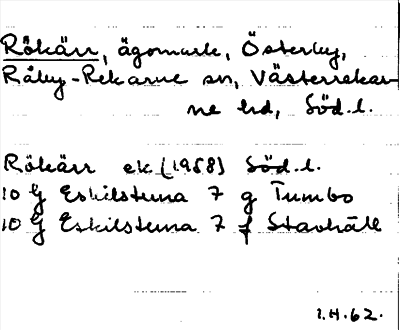 Rökärr, ägomark, Österby,
Råby-Rekarne sn, Västerrekar-
ne hd, Söd.l.
Rökärr ek (1958) Söd.l.
10 G Eskilstuna 7 g Tumbo
10 G Eskilstuna 7 f Stavhäll
1.H.62.